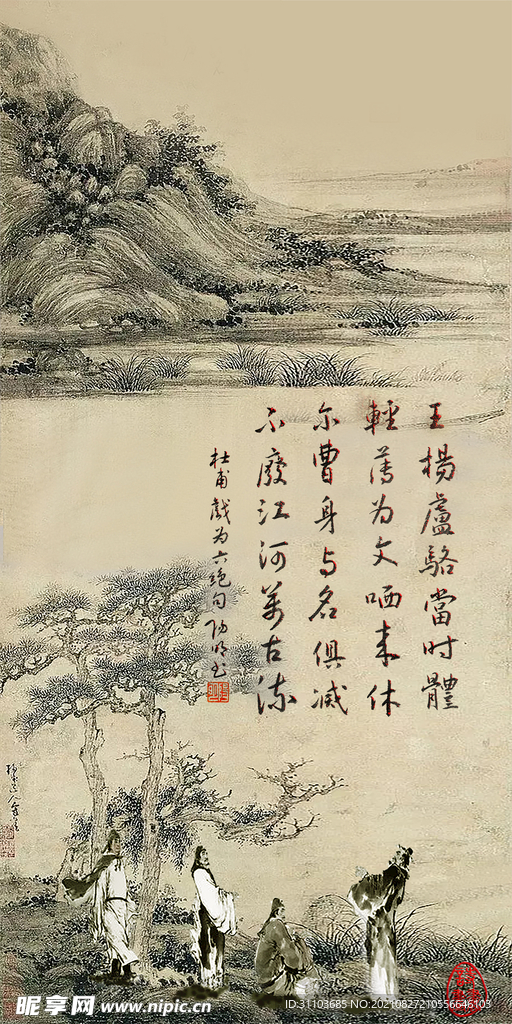 王楊盧駱當时體
輕薄为文哂未休
尔曹身与名俱滅
不廢江河萬古流
杜甫戲为六绝句
昵享网 www.nipic.cn
ID:31103685 NO:20210827210556646103